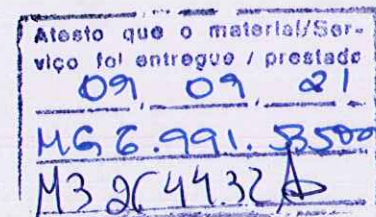 Atesto que o material/Ser-
viço foi entregue / prestado
09, 09, 21
MG 6.991.